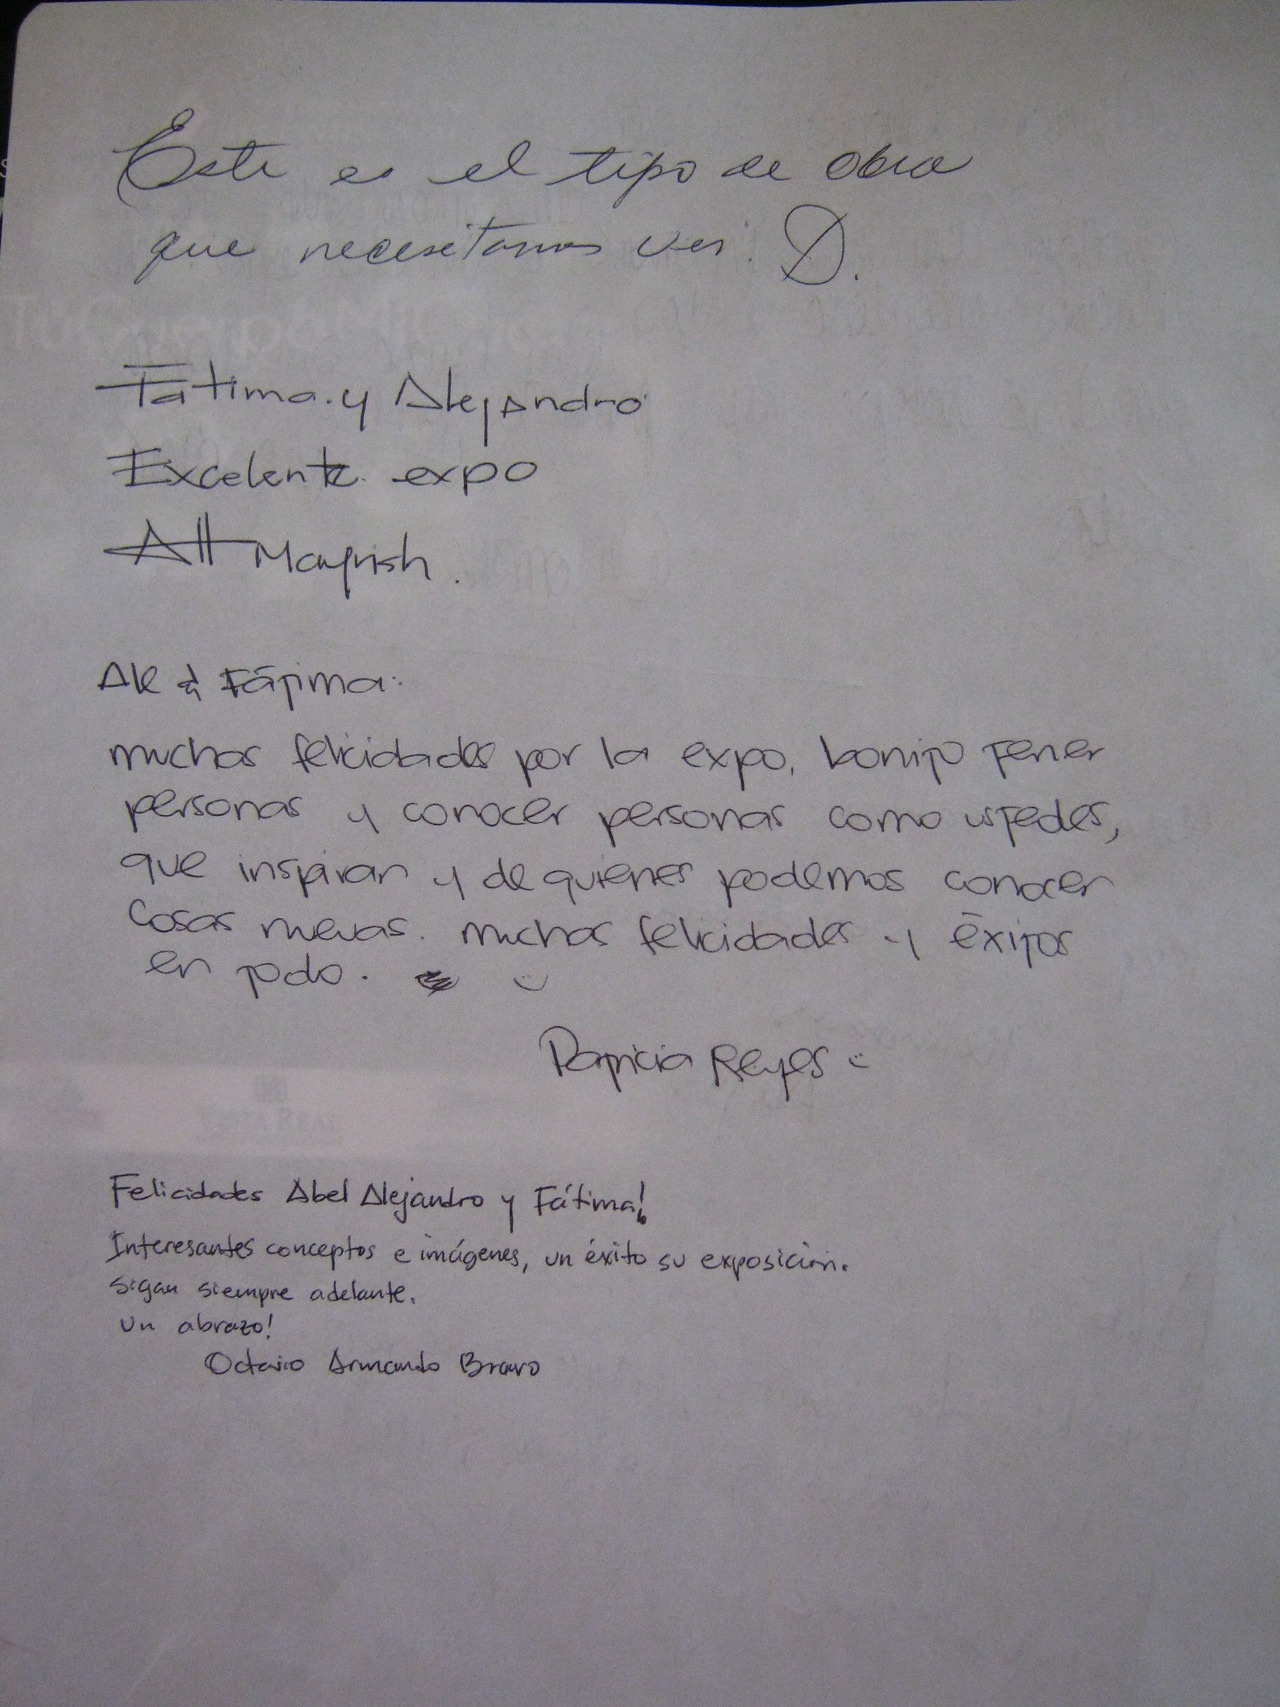 Este es el tipo de obra
que necesitamos ver. D.
Fátima y Alejandro
Excelente expo
Att Mayrish.
Ale & Fátima:
muchas felicidades por la expo, bonito tener
personas y conocer personas como ustedes,
que inspiran y de quienes podemos conocer
cosas nuevas. muchas felicidades y éxitos
en todo. :)
Patricia Reyes :)
VISTA REAL
Felicidades Abel Alejandro y Fátima!
Interesantes conceptos e imágenes, un éxito su exposición.
Sigan siempre adelante.
Un abrazo!
Octavio Armando Bravo